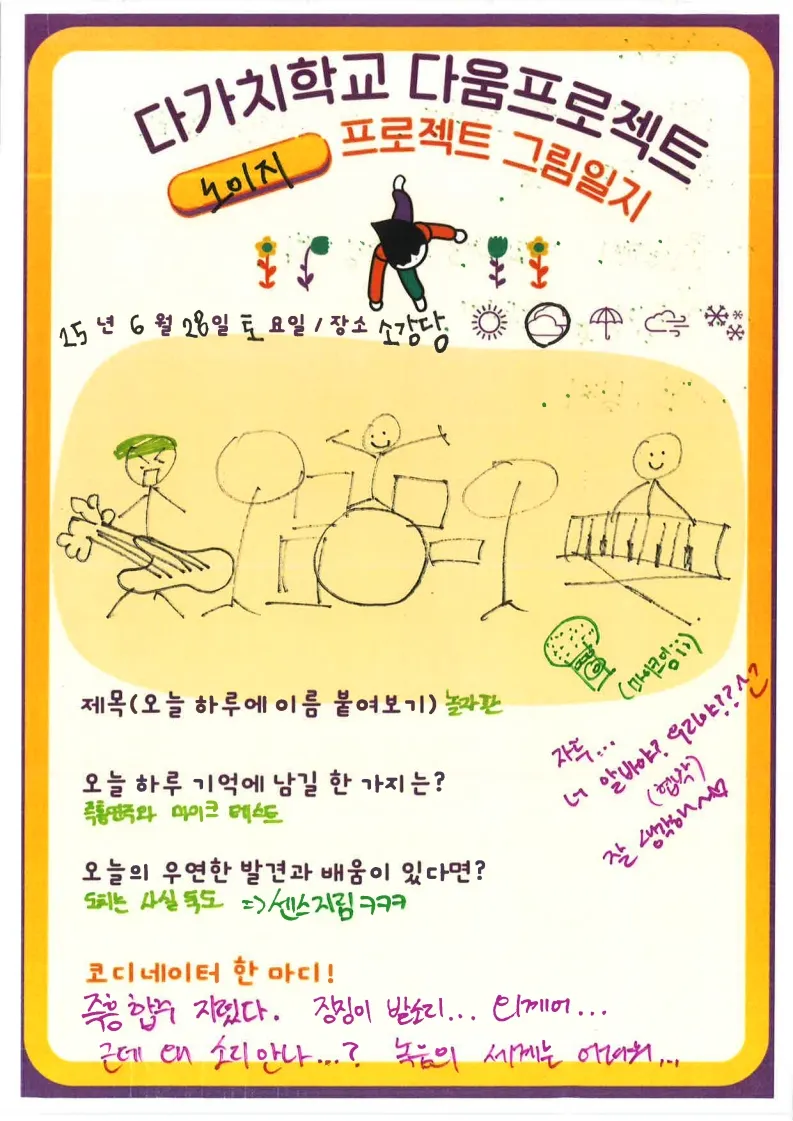 다가치학교 다움프로젝트
프로젝트 그림일지
노이지
25년 6월 28일 토요일 / 장소 소강당
(마이크임;;)
제목(오늘 하루에 이름 붙여보기) 놀자판
오늘 하루 기억에 남길 한 가지는?
즉흥연주와 마이크 테스트
오늘의 우연한 발견과 배움이 있다면?
도치는 사실 독도 => 센스지림 ㅋㅋㅋ
자두...
너 알바야? 우리야??
(협박)
잘 생각해~~
코디네이터 한 마디!
즉흥 합주 지렸다. 징징이 발소리... 외계어...
근데 왜 소리 안나...? 녹음의 세계는 어려워...